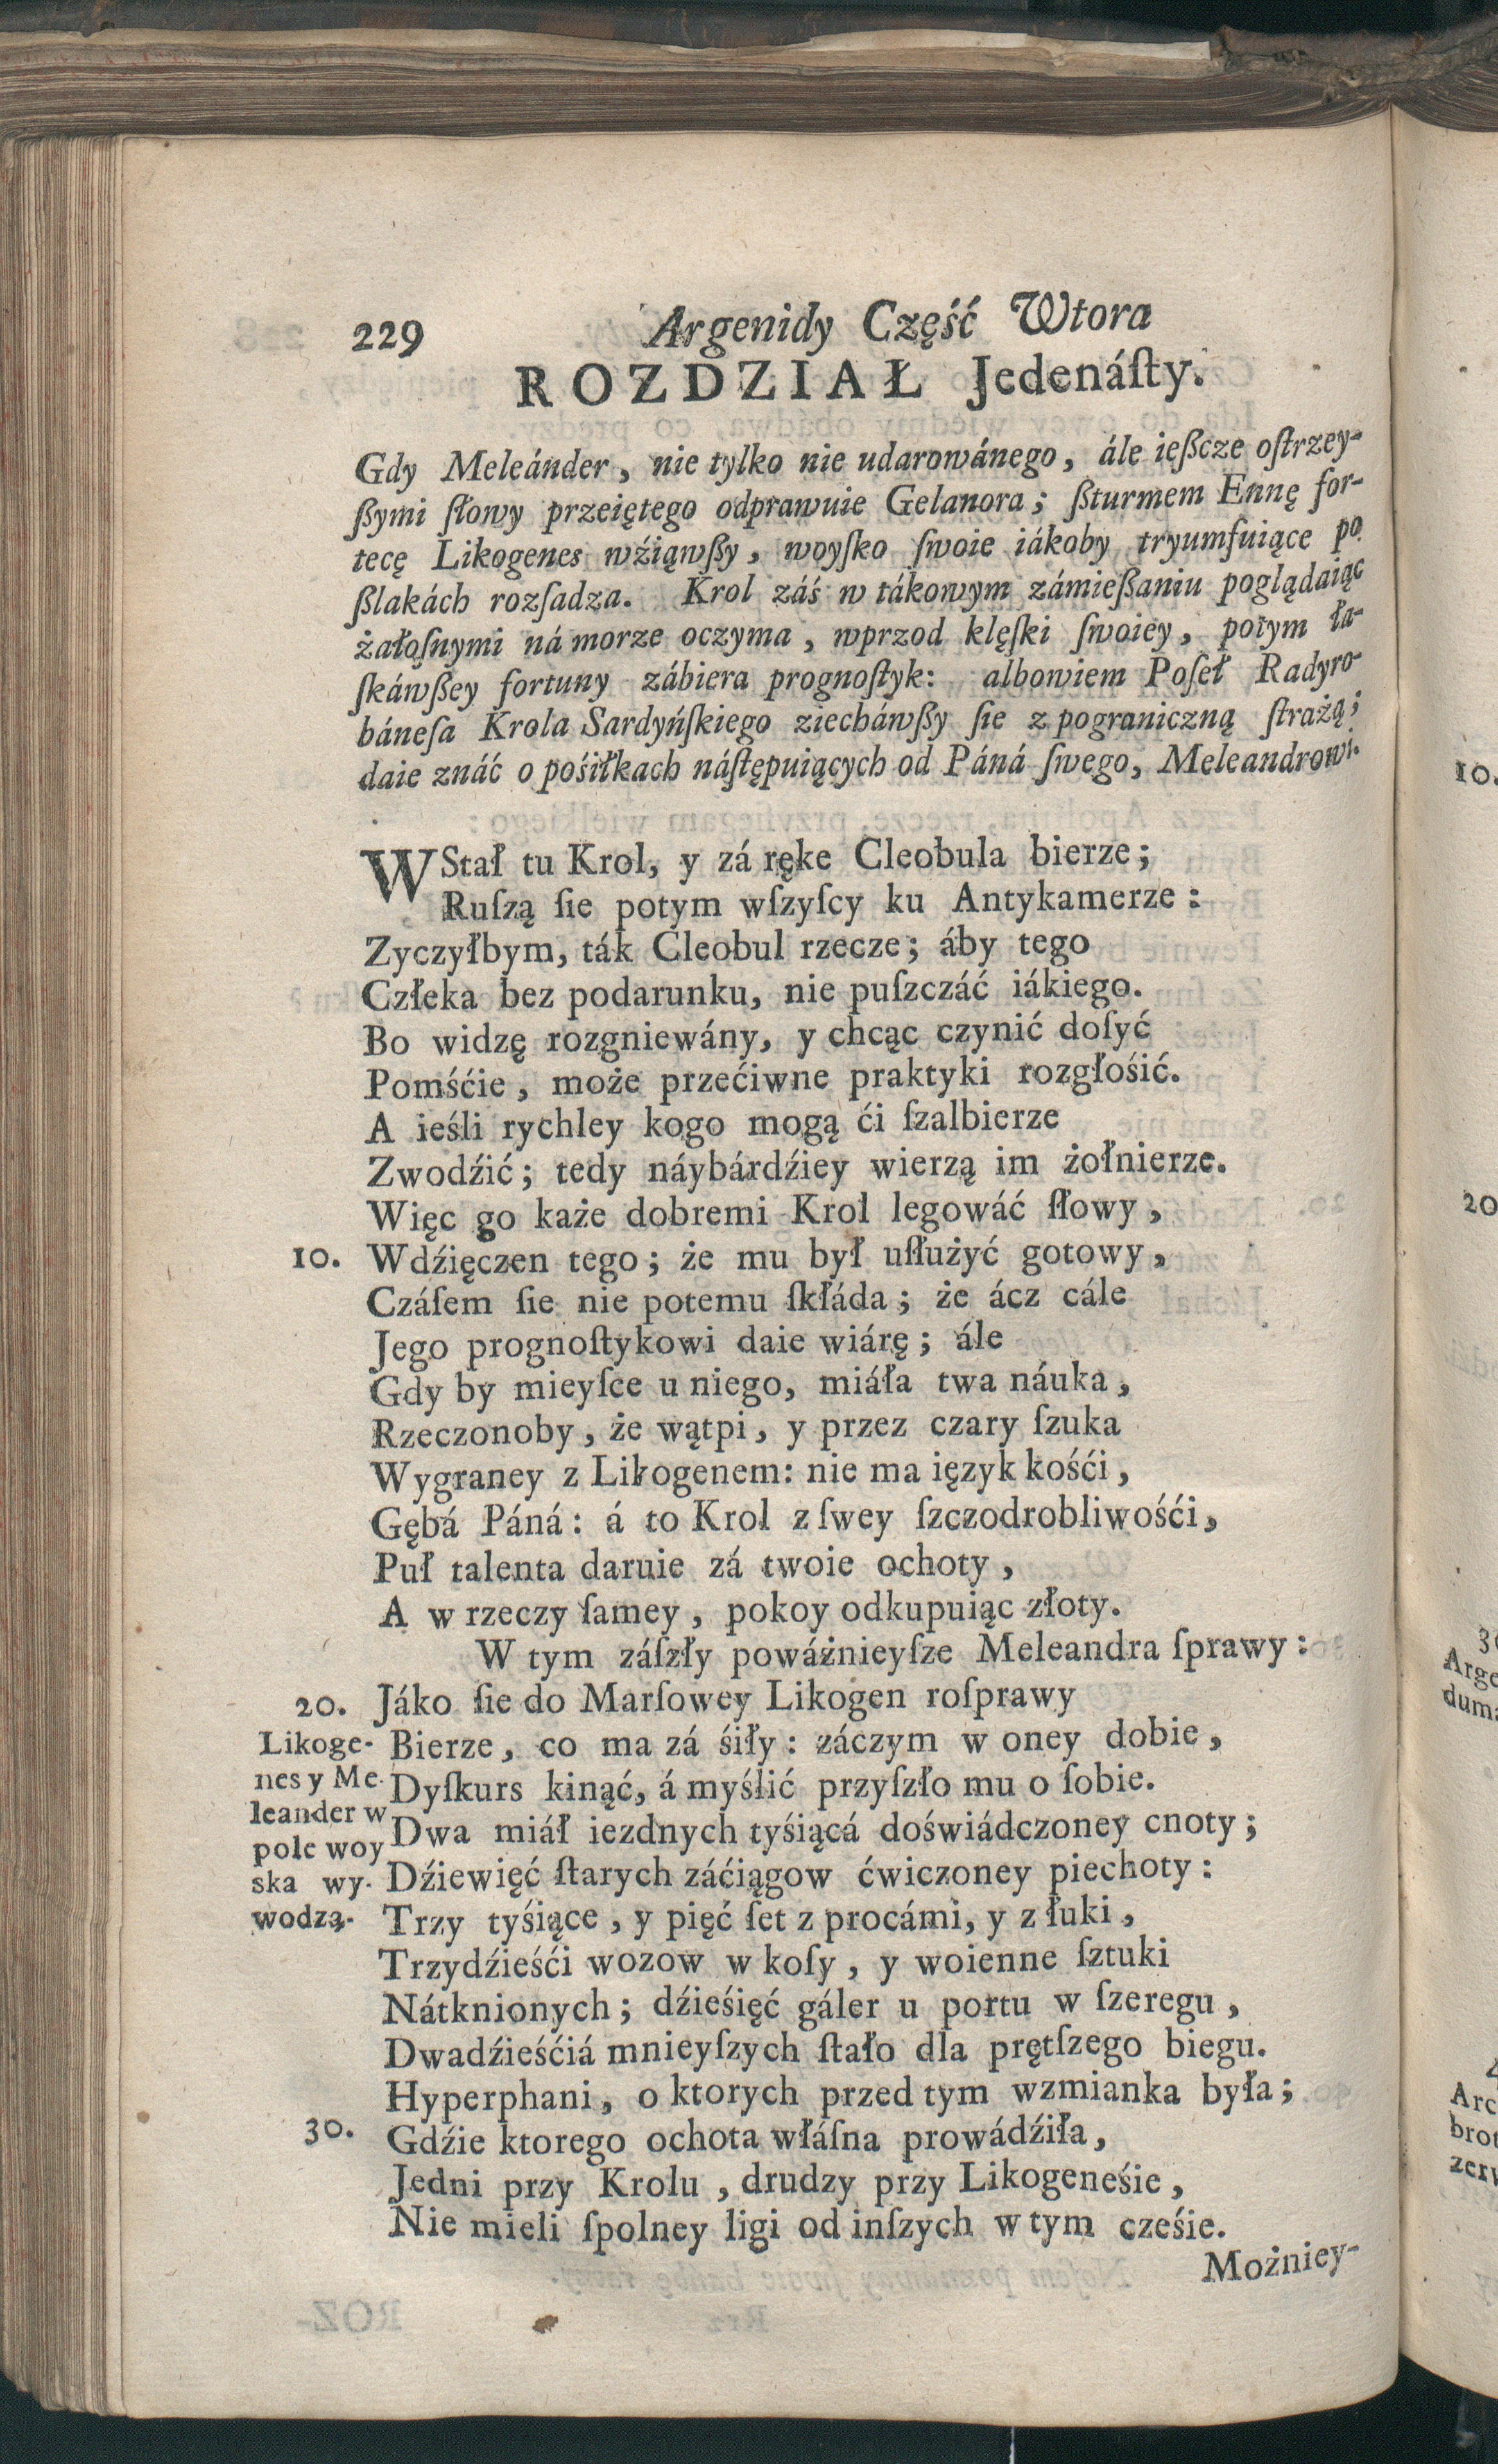 229 Argenidy Część Wtora
ROZDZIAŁ Jedenáſty.
Gdy Meleánder, nie tylko nie udarowánego, ále ießcze oſtrzey-
ßymi ſłowy przeiętego odprawuie Gelanora; ßturmem Ennę for-
tecę Likogenes wźiąwßy, woyſko ſwoie iákoby tryumfuiące po
ßlakách rozſadza. Krol záś w tákowym zámießaniu poglądaiąc
żałoſnymi ná morze oczyma, wprzod klęſki ſwoiey, potym ła-
ſkáwßey fortuny zábiera prognoſtyk: albowiem Poſeł Radyro-
báneſa Krola Sardyńſkiego ziecháwßy ſie z pograniczną ſtrażą;
daie znáć o pośiłkach náſtępuiących od Páná ſwego, Meleandrowi.
WStał tu Krol, y zá ręke Cleobula bierze;
Ruſzą ſie potym wſzyſcy ku Antykamerze:
Zyczyłbym, ták Cleobul rzecze; áby tego
Człeka bez podarunku, nie puſzczáć iákiego.
Bo widzę rozgniewány, y chcąc czynić doſyć
Pomśćie, może przećiwne praktyki rozgłośić.
A ieśli rychley kogo mogą ći ſzalbierze
Zwodźić; tedy náybárdźiey wierzą im żołnierze.
Więc go każe dobremi Krol legowáć ſłowy,
10. Wdźięczen tego; że mu był uſłużyć gotowy,
Czáſem ſie nie potemu ſkłáda; że ácz cále
Jego prognoſtykowi daie wiárę; ále
Gdy by mieyſce u niego, miáła twa náuka,
Rzeczonoby, że wątpi, y przez czary ſzuka
Wygraney z Likogenem: nie ma ięzyk kośći,
Gębá Páná: á to Krol z ſwey ſzczodrobliwośći,
Puł talenta daruie zá twoie ochoty,
A w rzeczy ſamey, pokoy odkupuiąc złoty.
W tym záſzły poważnieyſze Meleandra ſprawy:
20. Jáko ſie do Marſowey Likogen roſprawy
Likoge- Bierze, co ma zá śiły: záczym w oney dobie,
nes y Me- Dyſkurs kinąć, á myślić przyſzło mu o ſobie.
leander w Dwa miáł iezdnych tyśiącá doświádczoney cnoty;
pole woy
ska wy- Dźiewięć ſtarych záćiągow ćwiczoney piechoty:
wodzą. Trzy tyśiące, y pięć ſet z procámi, y z łuki,
Trzydźieśći wozow w koſy, y woienne ſztuki
Nátknionych; dźieśięć gáler u portu w ſzeregu,
Dwadźieśćiá mnieyſzych ſtało dla prętſzego biegu.
Hyperphani, o ktorych przed tym wzmianka była;
30. Gdźie ktorego ochota włáſna prowádźiła,
Jedni przy Krolu, drudzy przy Likogeneśie,
Nie mieli ſpolney ligi od inſzych w tym cześie.
Możniey-